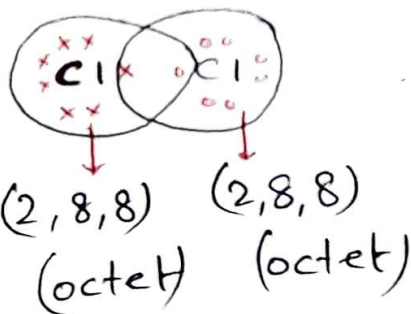 Cl Cl
(2,8,8) (2,8,8)
(octet) (octet)